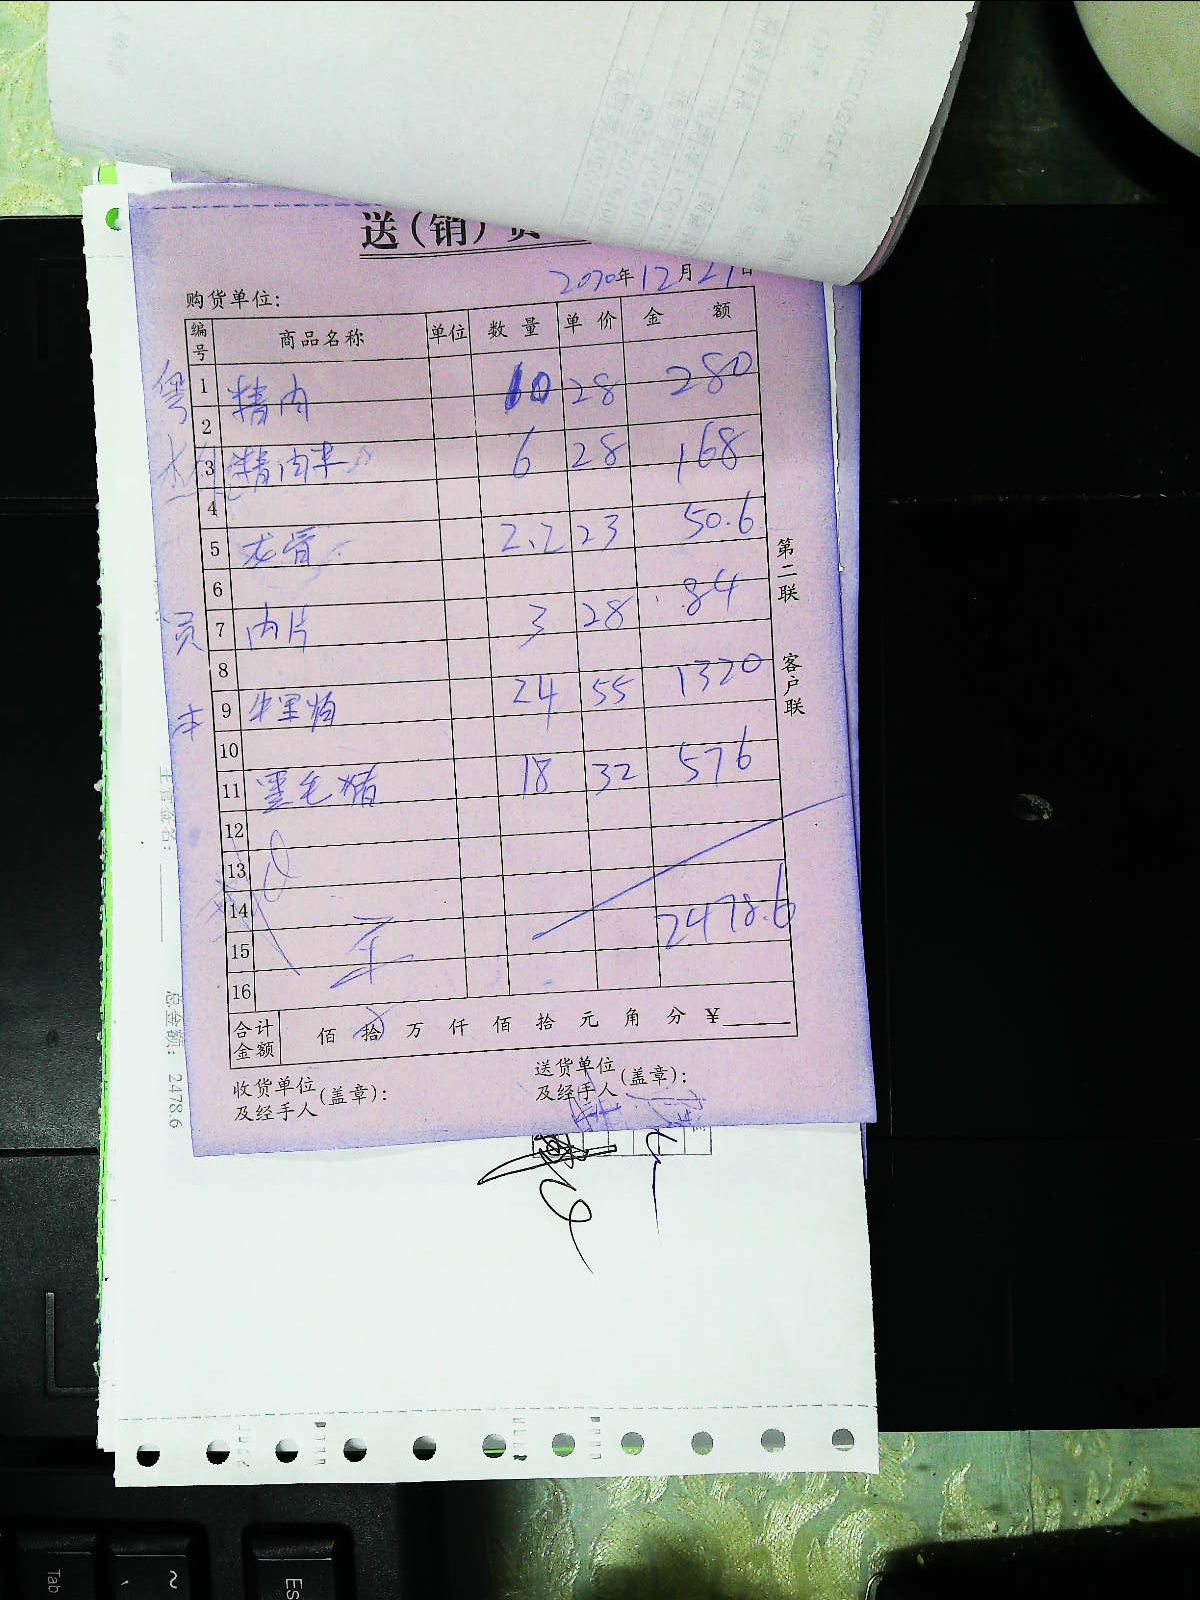 送(销)货
2020年12月21日
购货单位:
编号 商品名称 单位 数量 单价 金额
1 精肉 10 28 280
2
3 精肉末 6 28 168
4
5 龙骨 2.2 23 50.6
6
7 肉片 3 28 84
8
9 牛里脊 24 55 1320
10
11 黑毛猪 18 32 576
12
13
14
15 2478.6
16
合计金额 佰 拾 万 仟 佰 拾 元 角 分 ¥
收货单位及经手人(盖章):
送货单位及经手人(盖章):
第二联 客户联
粤
员
本
主管签名:
总金额: 2478.6
Tab
~
Es